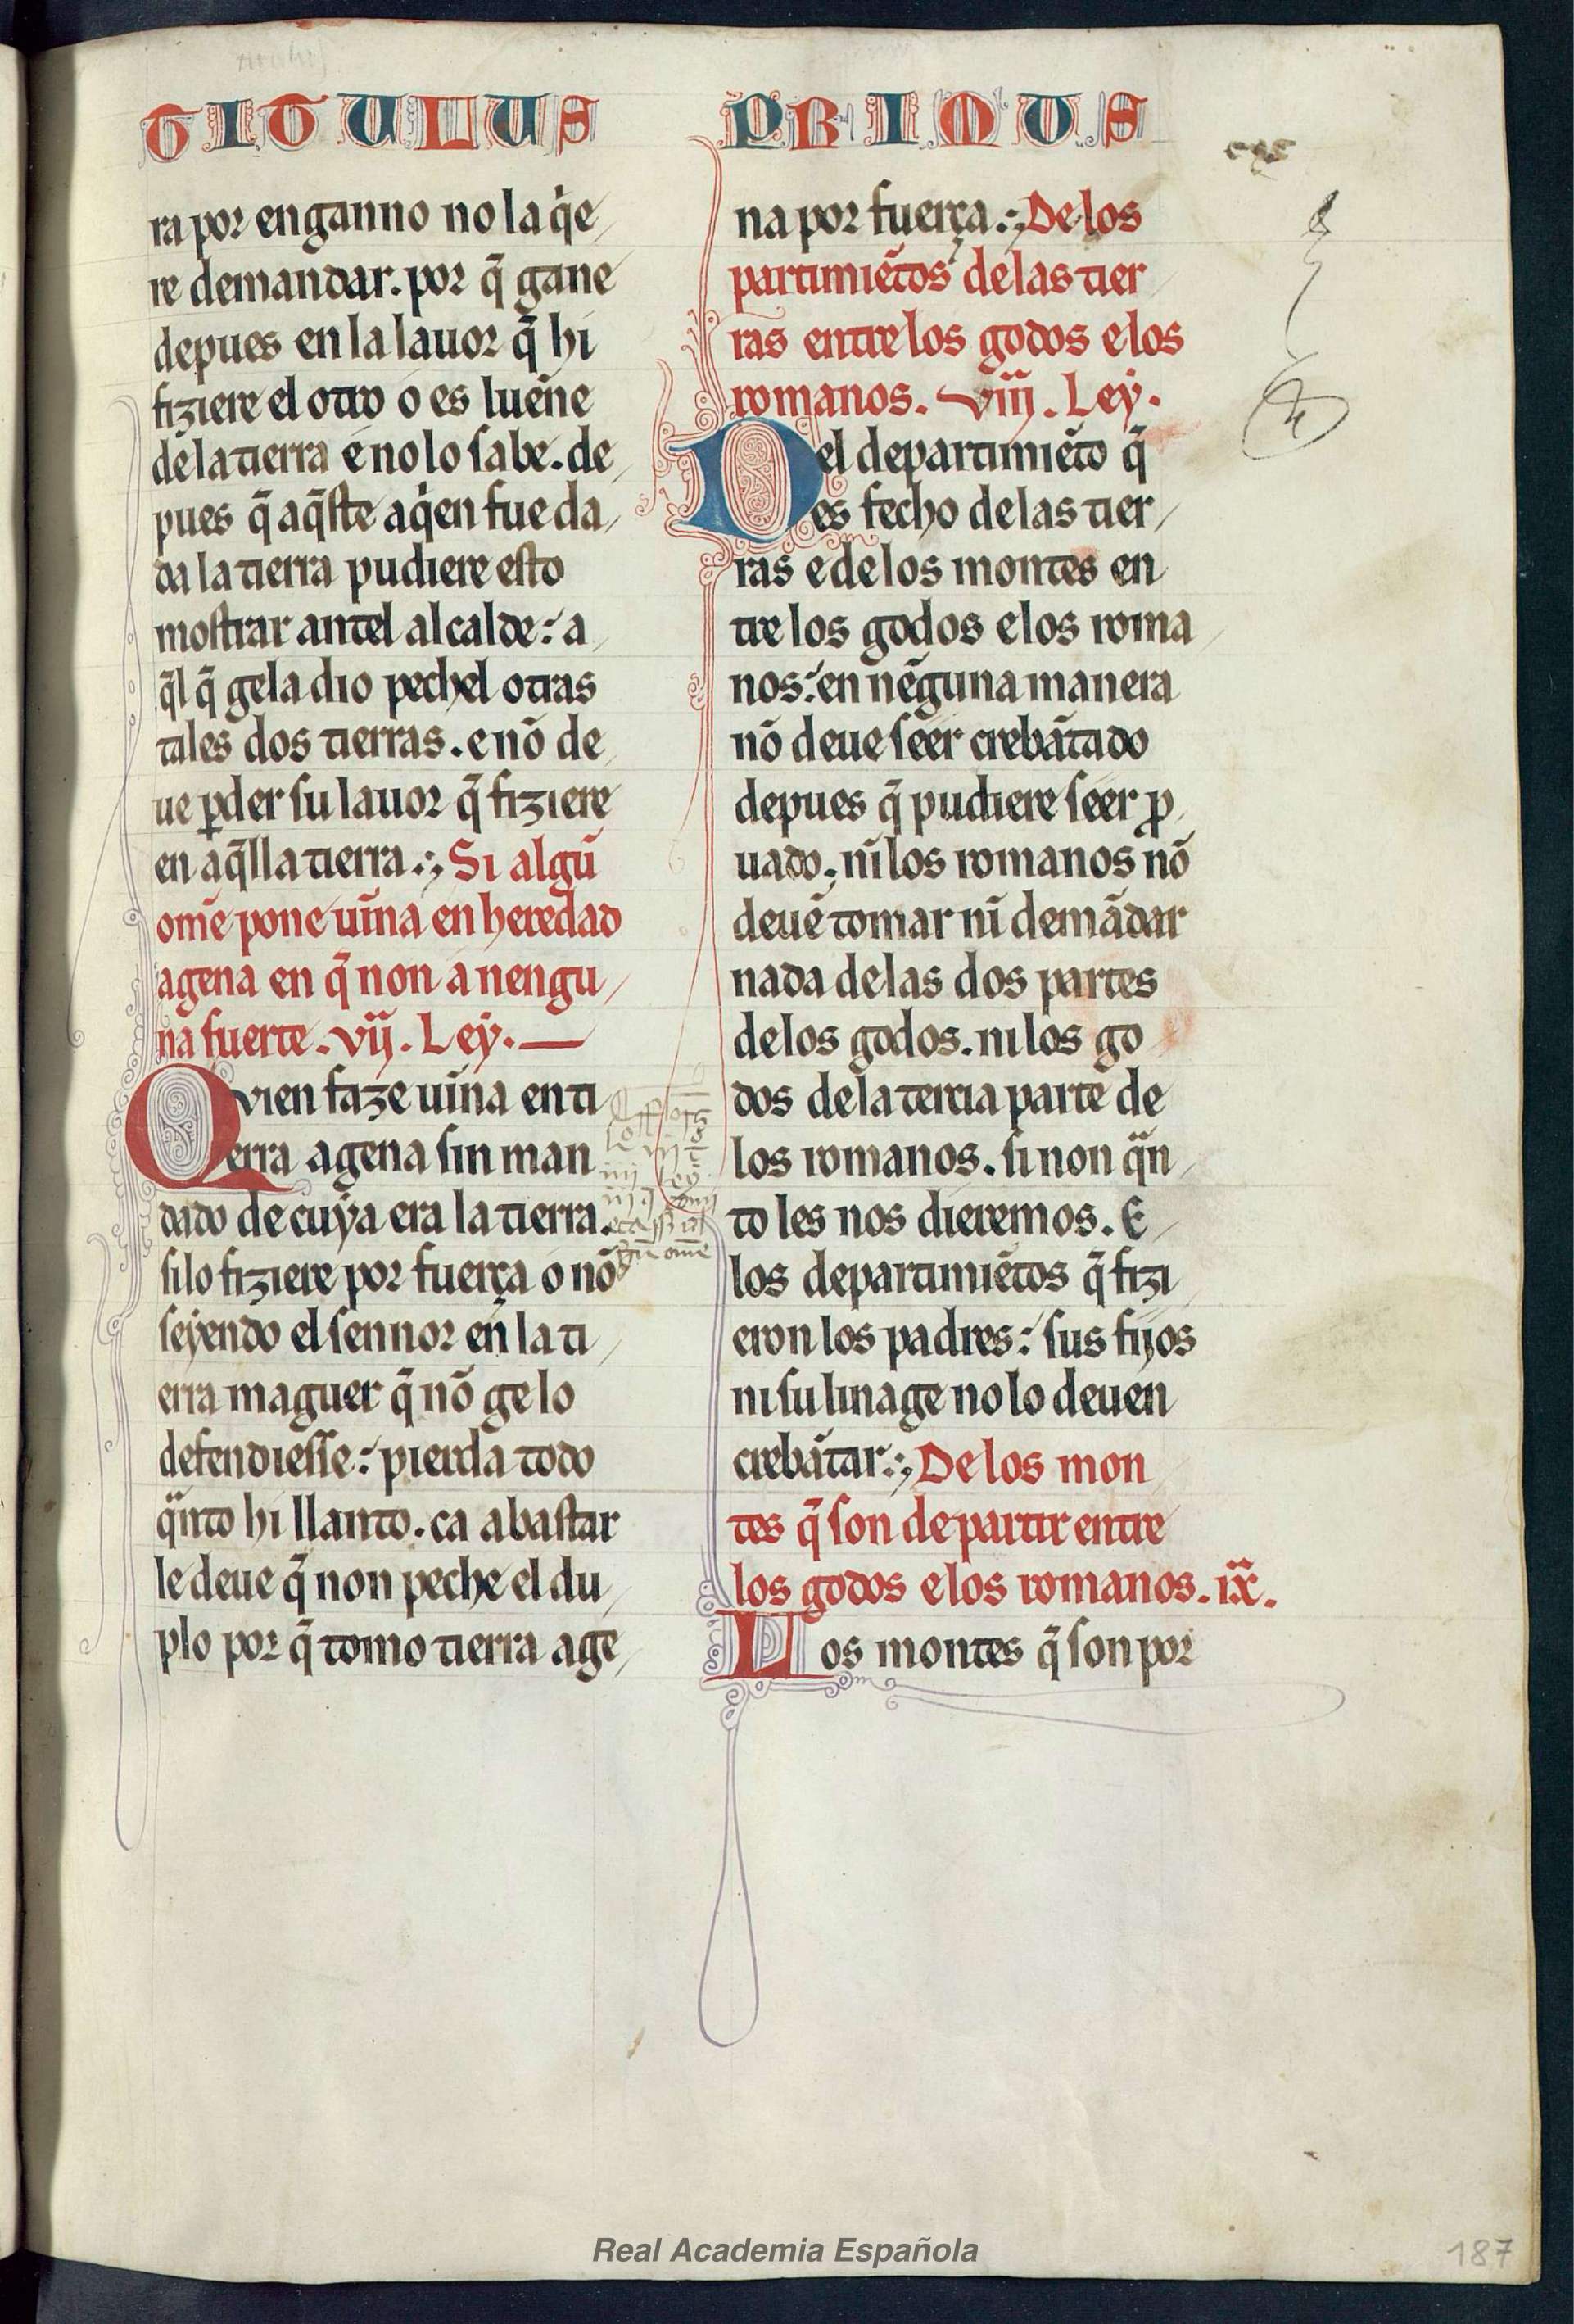 TITULUS PRIMUS
ra por enganno no la q̇e
re demandar. por q̃ gane
depues en la lauor q̃ hi
fiziere el otro o es luen̄e
de la tierra e no lo ſabe. de
pues q̃ aq̃ſte aq̇en fue da
da la tierra pudiere eſto
moſtrar antel alcalde: a
q̃l q̃ gela dio pechel otras
tales dos tierras. e nõ de
ue ꝑder ſu lauor q̃ fiziere
en aq̃lla tierra.:; Si algũ
ome pone uin̄a en heredad
agena en q̃ non a nengu
na fuerte. vij. Ley.
Qvien faze uin̄a en ti
erra agena ſin man
dado de cuya era la tierra.
ſilo fiziere por fuerça o nõ
ſeyendo el ſennor en la ti
erra maguer q̃ nõ ge lo
defendieſſe: pierda todo
qᵃnto hi llanto. ca abaſtar
le deue q̃ non peche el du
plo por q̃ tomo tierra age
na por fuerça.:; De los
partimiẽtos de las tier
ras entre los godos e los
romanos. viij. Ley.
Del departimiẽto q̃
es fecho de las tier
ras e de los montes en
tre los godos e los roma
nos: en nẽguna manera
nõ deue ſeer crebãtado
depues q̃ pudiere ſeer ꝓ
uado. nĩ los romanos nõ
deuẽ tomar nĩ demãdar
nada de las dos partes
de los godos. ni los go
dos de la tercia parte de
los romanos. ſi non qᵃn
to les nos dieremos. E
los departimiẽtos q̃ fizi
eron los padres: ſus fijos
ni ſu linage no lo deuen
crebãtar.:; De los mon
tes q̃ ſon de partir entre
los godos e los romanos. ix.
Los montes q̃ ſon por
Real Academia Española
187